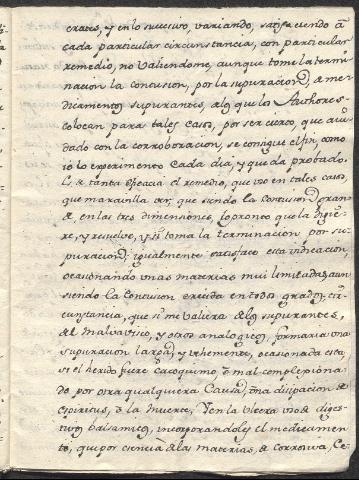 craves, y en lo sucesivo, variando, satisfaciendo à
cada particular circunstancia, con particular
remedio, no Valiendome, aunque tome la termi-
nacion la concusion, por la supuracion, de me-
dicamentos supurantes, de los que los Authores
colocan para tales casos, por ser cierto, que aiu-
dado con la corroboracion, se consigue el fin, como
io lo experimento cada dia, y queda probado.
Es de tanta eficacia el remedio, que uso en tales casos,
que maravilla ver, que siendo la Concusion gran-
de, en las tres dimensiones, lo pronto que la digie-
re, y resuelve, y si toma la terminacion por su-
puracion, igualmente satisface esta indicacion,
ocasionando unas materias mui limitadas, aun
siendo la Concusion crecida en todos grados, cir-
cunstancia, que si me valiera de los supurantes,
de Malvavisco, y otros analogicos, formaria una
supuracion larga, y vehemente, ocasionada esta,
si el herido fuere Cacoquimo, ò mal complepciona-
do por otra qualquiera Causa, una disipacion de
Espiritus, ò la muerte. Y en la Ulcera uso de diges-
tivos balsamicos, incorporandoles el medicamen-
to, que por ciencia de las materias, de corrosiva, se